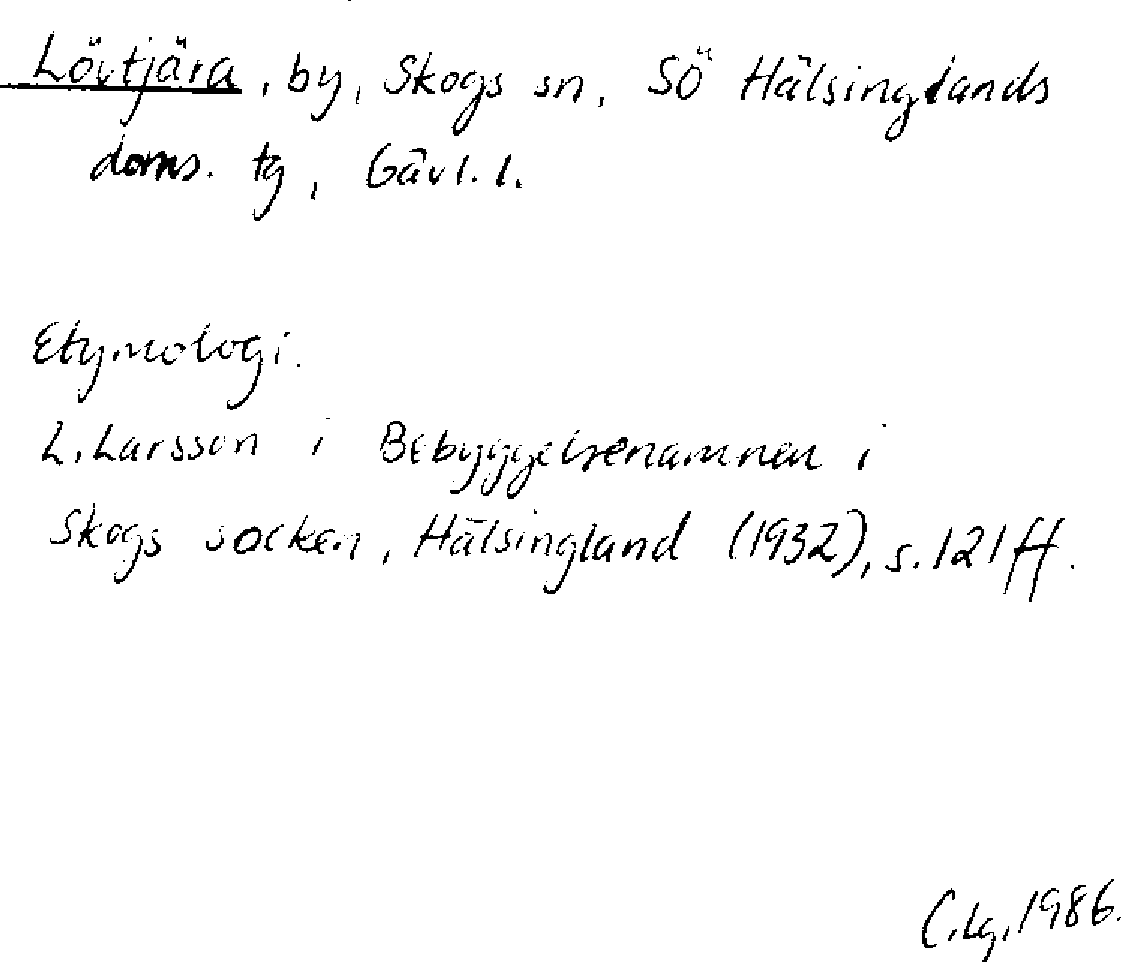 Lövtjära, by, Skogs sn, SÖ Hälsinglands
doms. tg, Gävl. l.
Etymologi.
L. Larsson i Bebyggelsenamnen i
Skogs socken, Hälsingland (1932), s. 121 ff.
C. Lg. 1986.